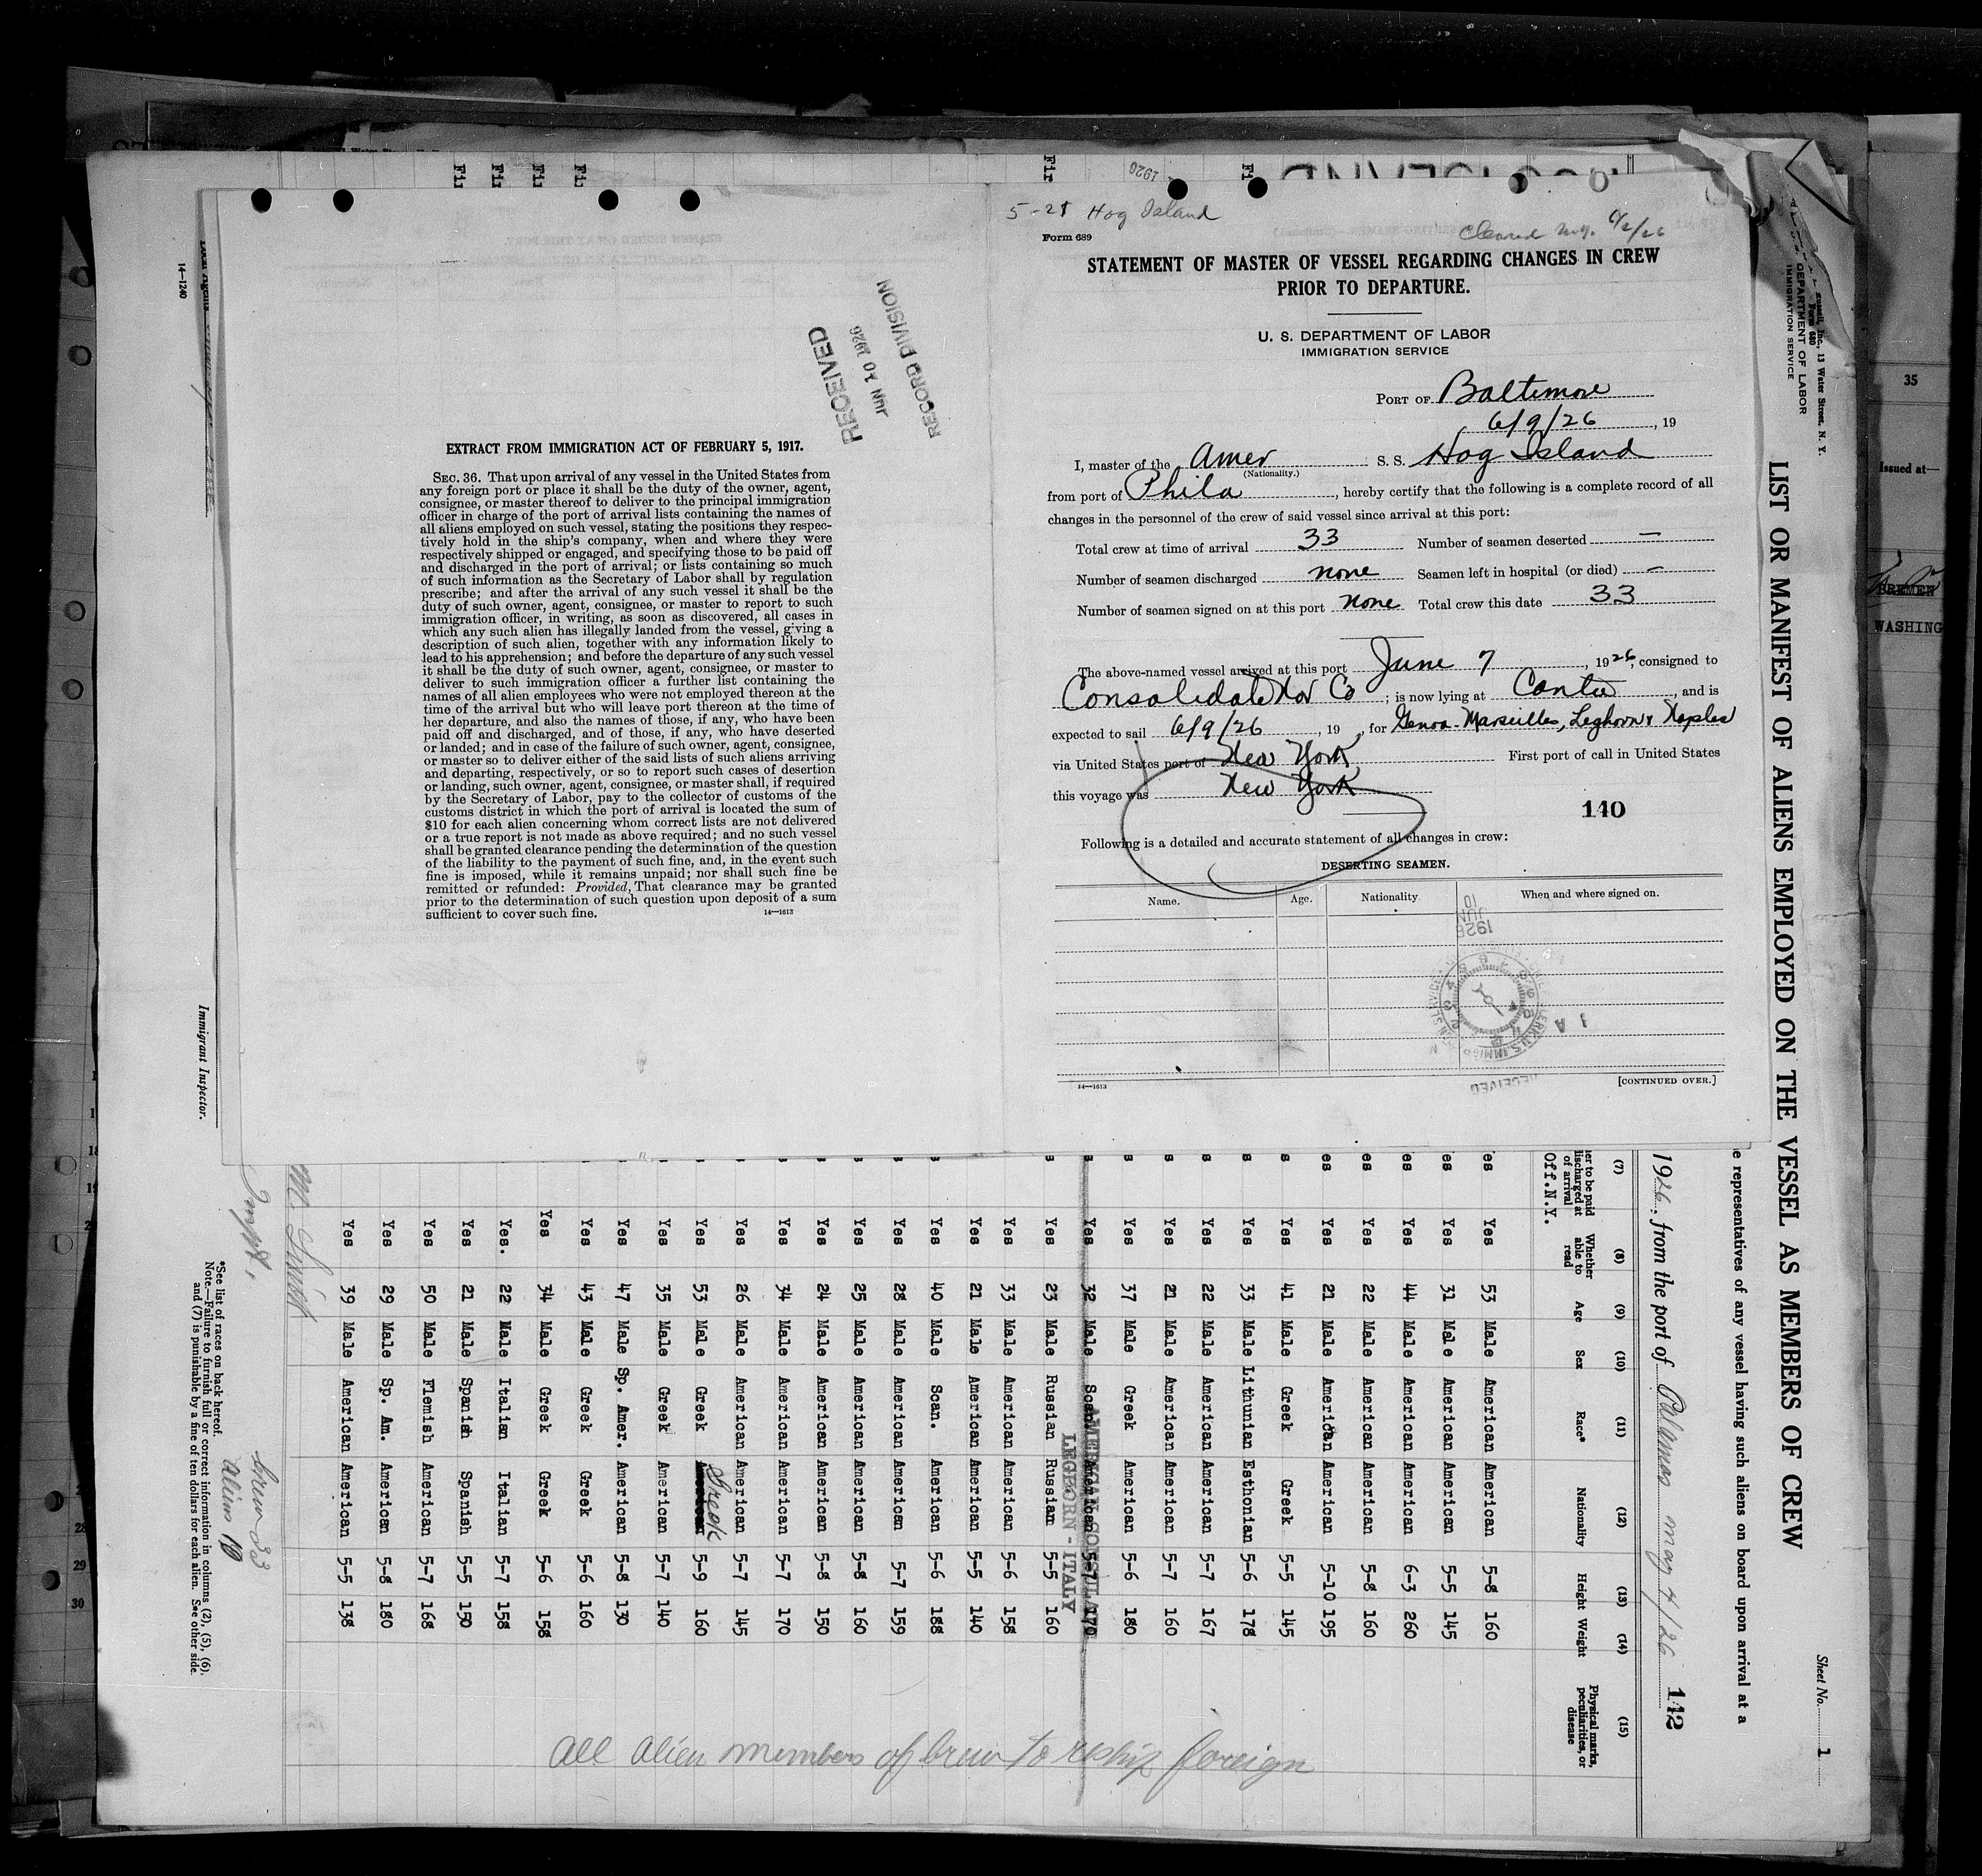 5-21 Hog Island
Cleared N.Y. 6/2/26
Form 689
STATEMENT OF MASTER OF VESSEL REGARDING CHANGES IN CREW
PRIOR TO DEPARTURE.
U. S. DEPARTMENT OF LABOR
IMMIGRATION SERVICE
PORT OF Baltimore
6/9/26, 19
I, master of the Amer S. S. Hog Island
(Nationality.)
from port of Phila, hereby certify that the following is a complete record of all
changes in the personnel of the crew of said vessel since arrival at this port:
Total crew at time of arrival 33 Number of seamen deserted —
Number of seamen discharged none Seamen left in hospital (or died) —
Number of seamen signed on at this port none Total crew this date 33
The above-named vessel arrived at this port June 7, 1926, consigned to
Consolidated Nav Co; is now lying at Canton, and is
expected to sail 6/9/26, 19, for Genoa-Marseilles, Leghorn & Naples
via United States port of New York First port of call in United States
this voyage was New York
140
Following is a detailed and accurate statement of all changes in crew:
DESERTING SEAMEN.
Name. Age. Nationality When and where signed on.
1926
JUN
10
RECEIVED
14—1613
[CONTINUED OVER.]
RECEIVED
JUN 10 1926
RECORD DIVISION
EXTRACT FROM IMMIGRATION ACT OF FEBRUARY 5, 1917.
SEC. 36. That upon arrival of any vessel in the United States from
any foreign port or place it shall be the duty of the owner, agent,
consignee, or master thereof to deliver to the principal immigration
officer in charge of the port of arrival lists containing the names of
all aliens employed on such vessel, stating the positions they respec-
tively hold in the ship's company, when and where they were
respectively shipped or engaged, and specifying those to be paid off
and discharged in the port of arrival; or lists containing so much
of such information as the Secretary of Labor shall by regulation
prescribe; and after the arrival of any such vessel it shall be the
duty of such owner, agent, consignee, or master to report to such
immigration officer, in writing, as soon as discovered, all cases in
which any such alien has illegally landed from the vessel, giving a
description of such alien, together with any information likely to
lead to his apprehension; and before the departure of any such vessel
it shall be the duty of such owner, agent, consignee, or master to
deliver to such immigration officer a further list containing the
names of all alien employees who were not employed thereon at the
time of the arrival but who will leave port thereon at the time of
her departure, and also the names of those, if any, who have been
paid off and discharged, and of those, if any, who have deserted
or landed; and in case of the failure of such owner, agent, consignee,
or master so to deliver either of the said lists of such aliens arriving
and departing, respectively, or so to report such cases of desertion
or landing, such owner, agent, consignee, or master shall, if required
by the Secretary of Labor, pay to the collector of customs of the
customs district in which the port of arrival is located the sum of
$10 for each alien concerning whom correct lists are not delivered
or a true report is not made as above required; and no such vessel
shall be granted clearance pending the determination of the question
of the liability to the payment of such fine, and, in the event such
fine is imposed, while it remains unpaid; nor shall such fine be
remitted or refunded: Provided, That clearance may be granted
prior to the determination of such question upon deposit of a sum
sufficient to cover such fine.
14—1613
Inc., 13 Water Street, N. Y.
Form 680
DEPARTMENT OF LABOR
IMMIGRATION SERVICE
Sheet No. 1
LIST OR MANIFEST OF ALIENS EMPLOYED ON THE VESSEL AS MEMBERS OF CREW
representatives of any vessel having such aliens on board upon arrival at a
1926, from the port of Palamos May 4/26 142
(7) (8) (9) (10) (11) (12) (13) (14) (15)
er to be paid discharged at of arrival Whether able to read Age Sex Race* Nationality Height Weight Physical marks, peculiarities, or disease
Off.N.Y.
es Yes 53 Male American American 5-8 160
es Yes 31 Male American American 5-5 145
es Yes 44 Male American American 6-3 260
es Yes 22 Male American American 5-8 160
es Yes 21 Male American American 5-10 195
s Yes 41 Male Greek Greek 5-5 145
s Yes 33 Male Lithunian Esthonian 5-6 178
s Yes 22 Male American American 5-7 167
s Yes 21 Male American American 5-7 160
s Yes 37 Male Greek American 5-6 180
s Yes 32 Male Scan. American 5-7 170
AMERICAN CONSULATE
LEGHORN - ITALY
s Yes 23 Male Russian Russian 5-5 160
Yes 33 Male American American 5-6 158
s Yes 21 Male American American 5-5 140
s Yes 40 Male Scan. American 5-6 188
s Yes 28 Male American American 5-7 159
s Yes 25 Male American American 5-8 160
s Yes 24 Male American American 5-8 150
s Yes 34 Male American American 5-7 170
s Yes 26 Male American American 5-7 145
s Yes 53 Male Greek Greek 5-9 160
s Yes 35 Male Greek American 5-7 140
s Yes 47 Male Sp. Amer. American 5-8 130
s Yes 43 Male Greek Greek 5-6 160
Yes 34 Male Greek Greek 5-6 158
Yes. 22 Male Italian Italian 5-7 158
Yes 21 Male Spanish Spanish 5-5 150
Yes 50 Male Flemish American 5-7 168
Yes 29 Male Sp. Am. American 5-8 180
Yes 39 Male American American 5-5 138
All alien members of crew to reship foreign
M. Smith
Inspt.
Crew 33
Aliens 10
*See list of races on back hereof.
Note.—Failure to furnish full or correct information in columns (2), (5), (6),
and (7) is punishable by a fine of ten dollars for each alien. See other side.
Immigrant Inspector.
14—1240
35
Issued at—
BREMEN
WASHING
28
29
30